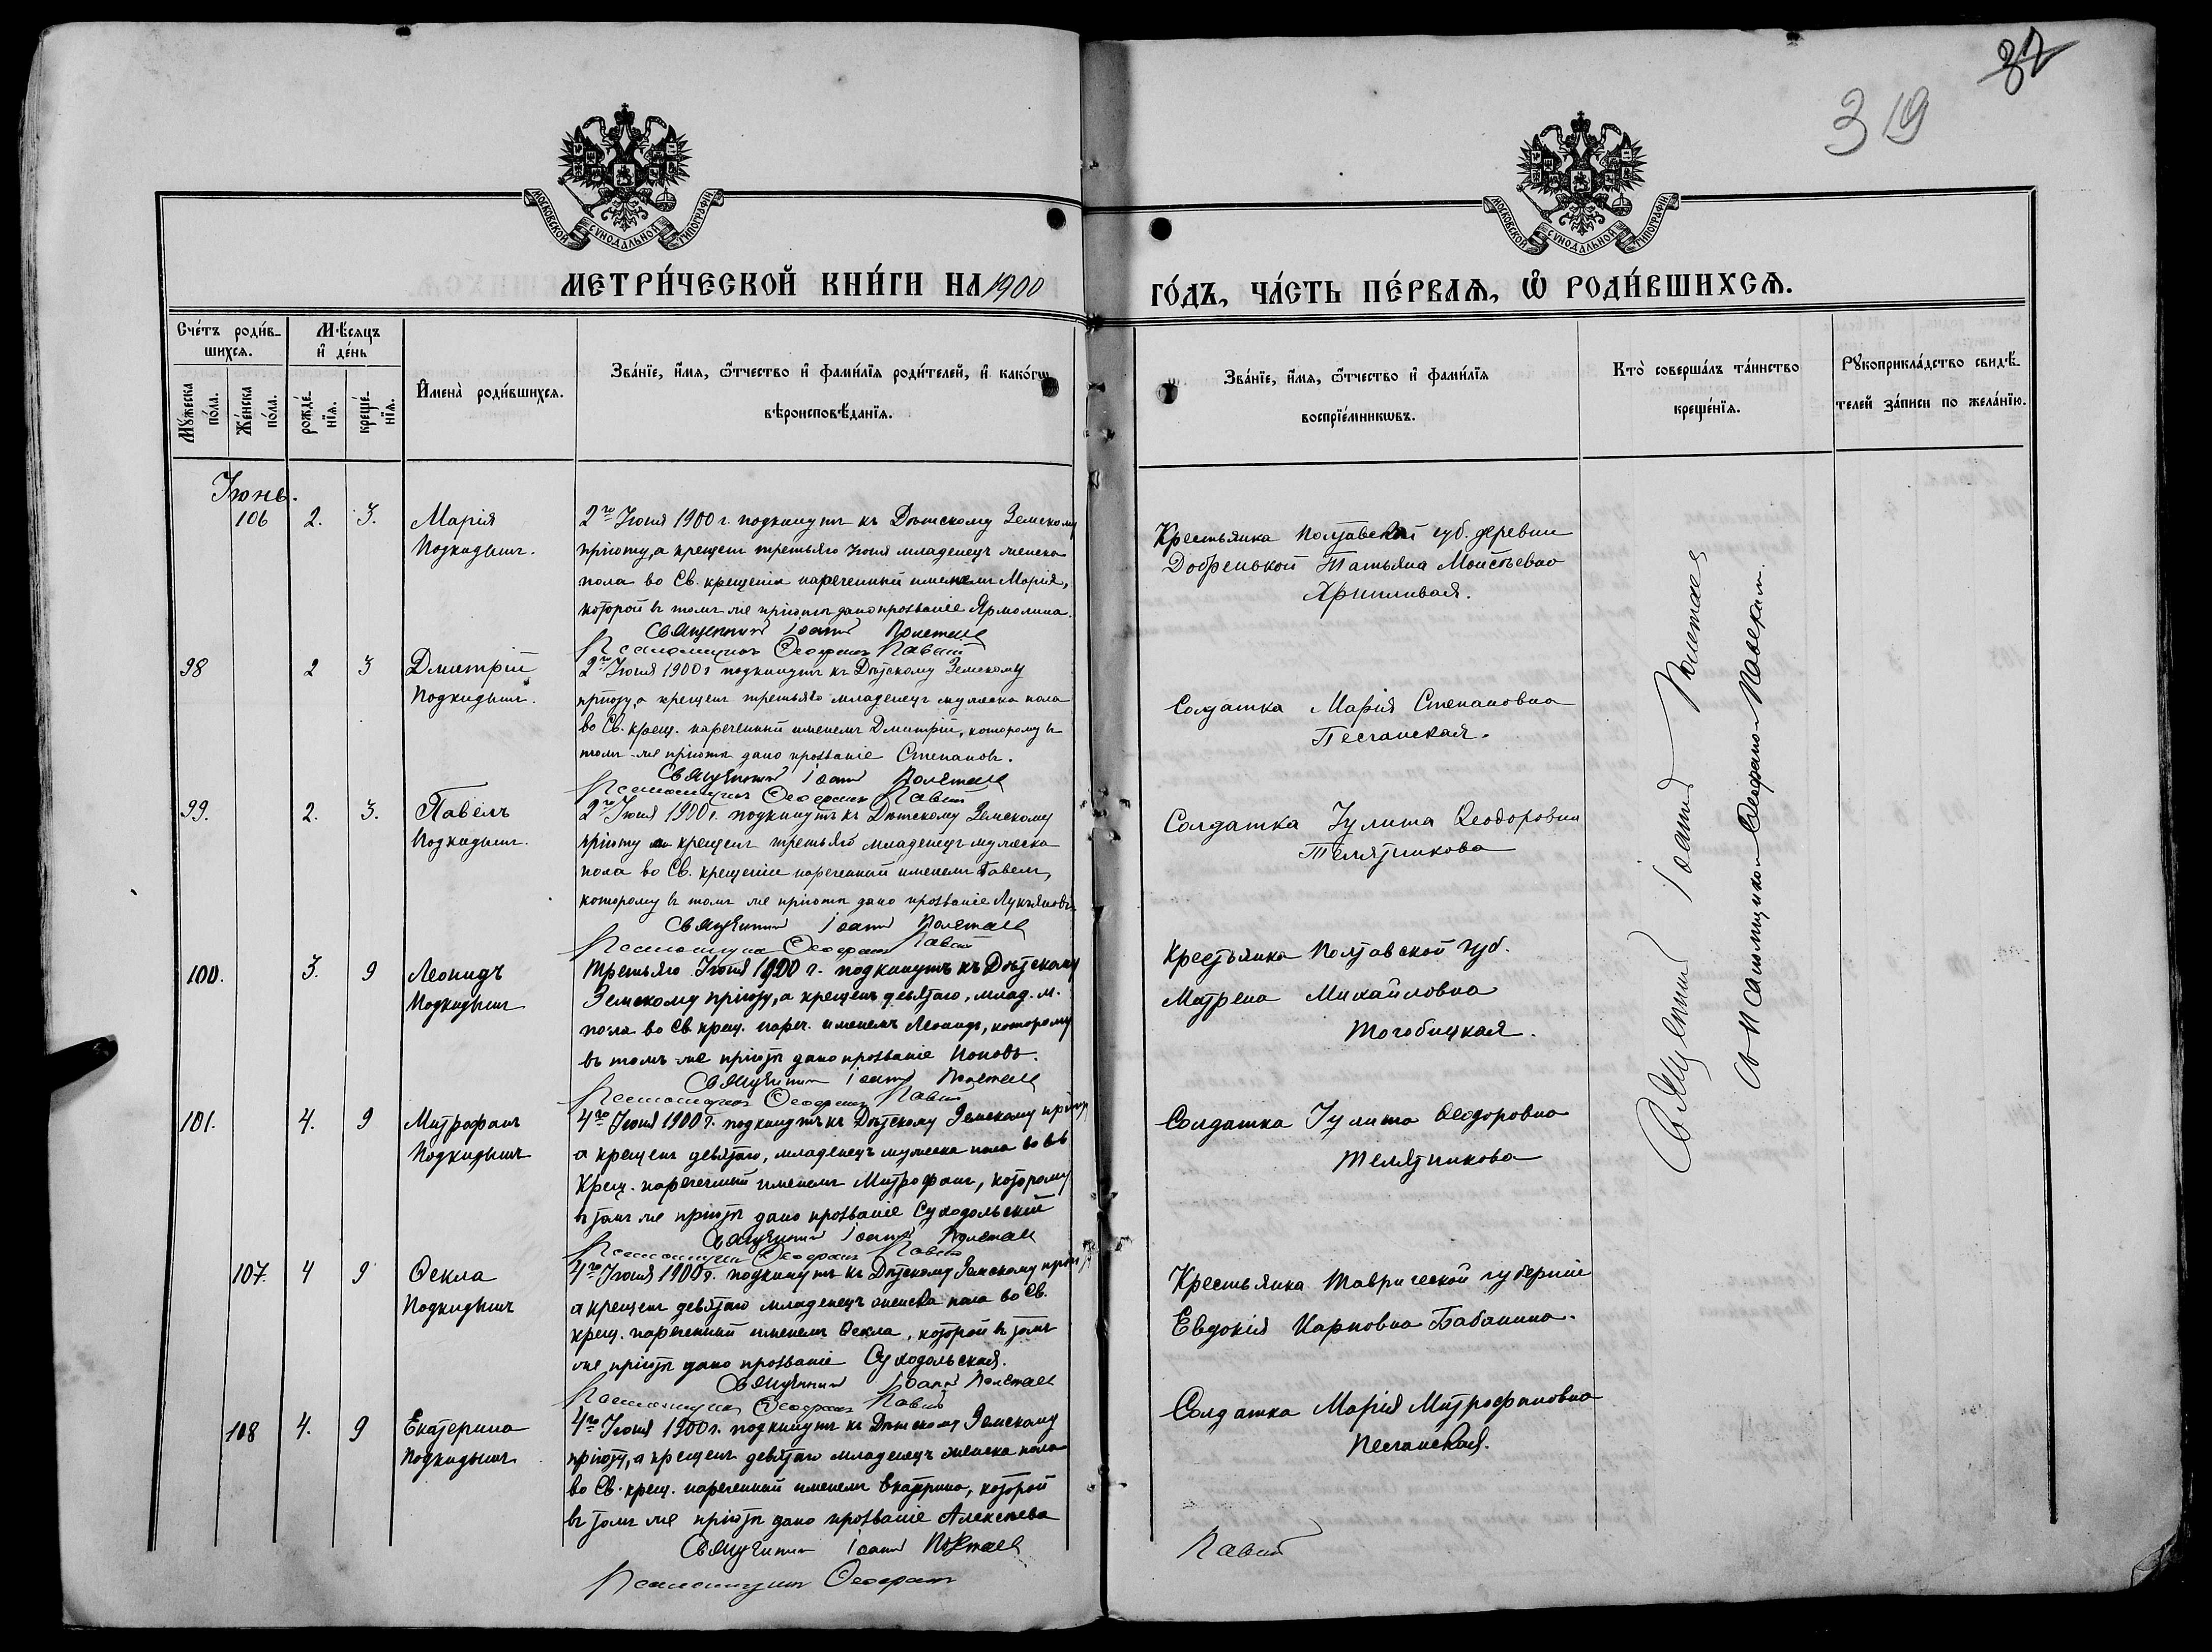 37
319
МОСКОВСКОЙ СѴНОДАЛЬНОЙ ТИПОГРАФІИ
МОСКОВСКОЙ СѴНОДАЛЬНОЙ ТИПОГРАФІИ
МЕТРИ́ЧЕСКОЙ КНИ́ГИ НА 1900
ГО́ДЪ, ЧА́СТЬ ПЕ́РВАѦ, Ѡ҆ РОДИ́ВШИХСѦ.
Сче́тъ роди́в-
шихсѧ.
Мѹ́жеска по́ла.
Же́нска по́ла.
Мѣ́сѧцъ
и҆ де́нь
рожде́-
нїѧ.
креще́-
нїѧ.
И҆мена̀ роди́вшихсѧ.
Зва́нїе, и҆́мѧ, ѻ҆́тчество и҆ фами́лїѧ роди́телей, и҆ како́гѡ
вѣроисповѣ́данїѧ.
Зва́нїе, и҆́мѧ, ѻ҆́тчество и҆ фами́лїѧ
воспрїе́мникѡвъ.
Кто̀ соверша́лъ та́инство
креще́нїѧ.
Рѹкоприкла́дство свидѣ́-
телей за́писи по жела́нїю.
Іюнь.
106 2. 3. Марія
Подкидышъ.
2го Іюня 1900 г. подкинутъ къ Дѣтскому Земскому
пріюту, а крещенъ третьяго Іюня младенецъ женска
пола во Св. крещеніи нареченный именемъ Марія,
которой въ томъ же пріютѣ дано прозваніе Ярмолина.
Священникъ Іоаннъ
Псаломщикъ Ѳеофанъ
Крестьянка Полтавской губ. деревни
Добренькой Татьяна Моисѣевна
Хрипливая.
98 2 3 Дмитрій
Подкидышъ.
2го Іюня 1900 г подкинутъ къ Дѣтскому Земскому
пріюту, а крещенъ третьяго младенецъ мужеска пола
во Св. крещ. нареченный именемъ Дмитрій, которому въ
томъ же пріютѣ дано прозваніе Степановъ.
Священникъ Іоаннъ
Псаломщикъ Ѳеофанъ
Солдатка Марія Степановна
Песчанская.
99. 2. 3. Павелъ
Подкидышъ.
2го Іюня 1900 г. подкинутъ къ Дѣтскому Земскому
пріюту а крещенъ третьяго младенецъ мужеска
пола во Св. крещеніи нареченный именемъ Павелъ,
которому въ томъ же пріютѣ дано прозваніе Лукьяновъ
Священникъ Іоаннъ
Псаломщикъ Ѳеофанъ
Солдатка Іулита Ѳеодоровна
Телятникова
100. 3. 9 Леонидъ
Подкидышъ
Третьяго Іюня 1900 г. подкинутъ къ Дѣтскому
Земскому пріюту, а крещенъ девятаго, млад. м.
пола во Св крещ. нареч. именемъ Леонидъ, которому
въ томъ же пріютѣ дано прозваніе Поповъ.
Священникъ Іоаннъ
Псаломщикъ Ѳеофанъ
Крестьянка Полтавской губ.
Матрена Михайловна
Тогобицкая.
101. 4. 9 Митрофанъ
Подкидышъ
4го Іюня 1900 г. подкинутъ къ Дѣтскому Земскому пріюту
а крещенъ девятаго, младенецъ мужеска пола во Св
Крещ. нареченный именемъ Митрофанъ, которому
въ томъ же пріютѣ дано прозваніе Суходольскій
Священникъ Іоаннъ
Псаломщикъ Ѳеофанъ
Солдатка Іулита Ѳеодоровна
Телятникова
107. 4 9 Ѳекла
Подкидышъ
4го Іюня 1900 г. подкинутъ къ Дѣтскому Земскому пріюту
а крещенъ девятаго младенецъ женска пола во Св.
крещ. нареченный именемъ Ѳекла, которой въ томъ
же пріютѣ дано прозваніе Суходольская.
Священникъ Іоаннъ
Псаломщикъ Ѳеофанъ
Крестьянка Таврической губерніи
Евдокія Карповна Бабанина.
108 4. 9 Екатерина
Подкидышъ
4го Іюня 1900 г. подкинутъ къ Дѣтскому Земскому
пріюту, а крещенъ девятаго младенецъ женска пола
во Св. крещ. нареченный именемъ Екатерина, которой
въ томъ же пріютѣ дано прозваніе Алексѣева
Священникъ Іоаннъ
Псаломщикъ Ѳеофанъ
Солдатка Марія Митрофановна
Песчанская.
Священникъ Іоаннъ
съ псаломщикомъ Ѳеофаномъ